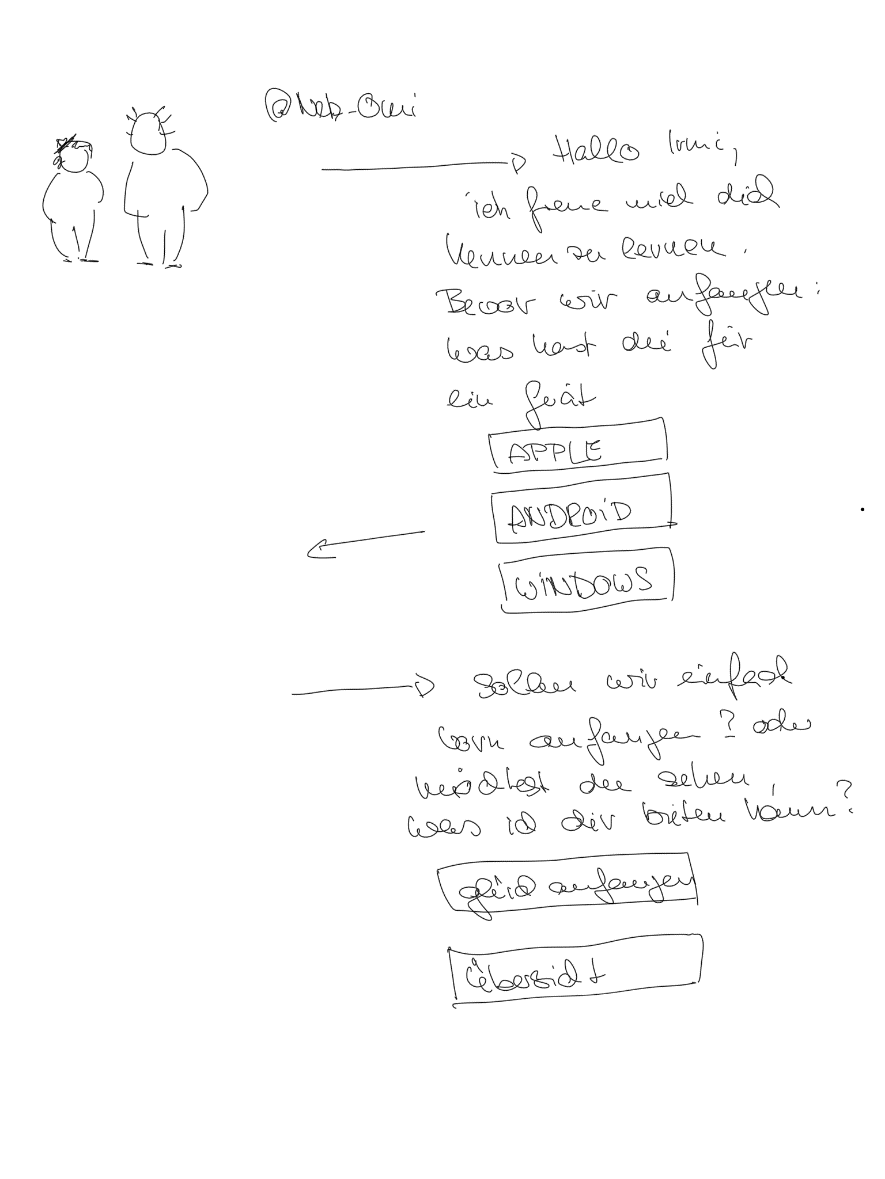 @Web-Omi
Hallo Irmi,
ich freue mich dich
kennenzulernen.
Bevor wir anfangen:
was hast du für
ein Gerät
APPLE
ANDROID
WINDOWS
Sollen wir einfach
vorn anfangen? oder
möchtest du sehen,
was ich dir bieten kann?
gleich anfangen
Übersicht